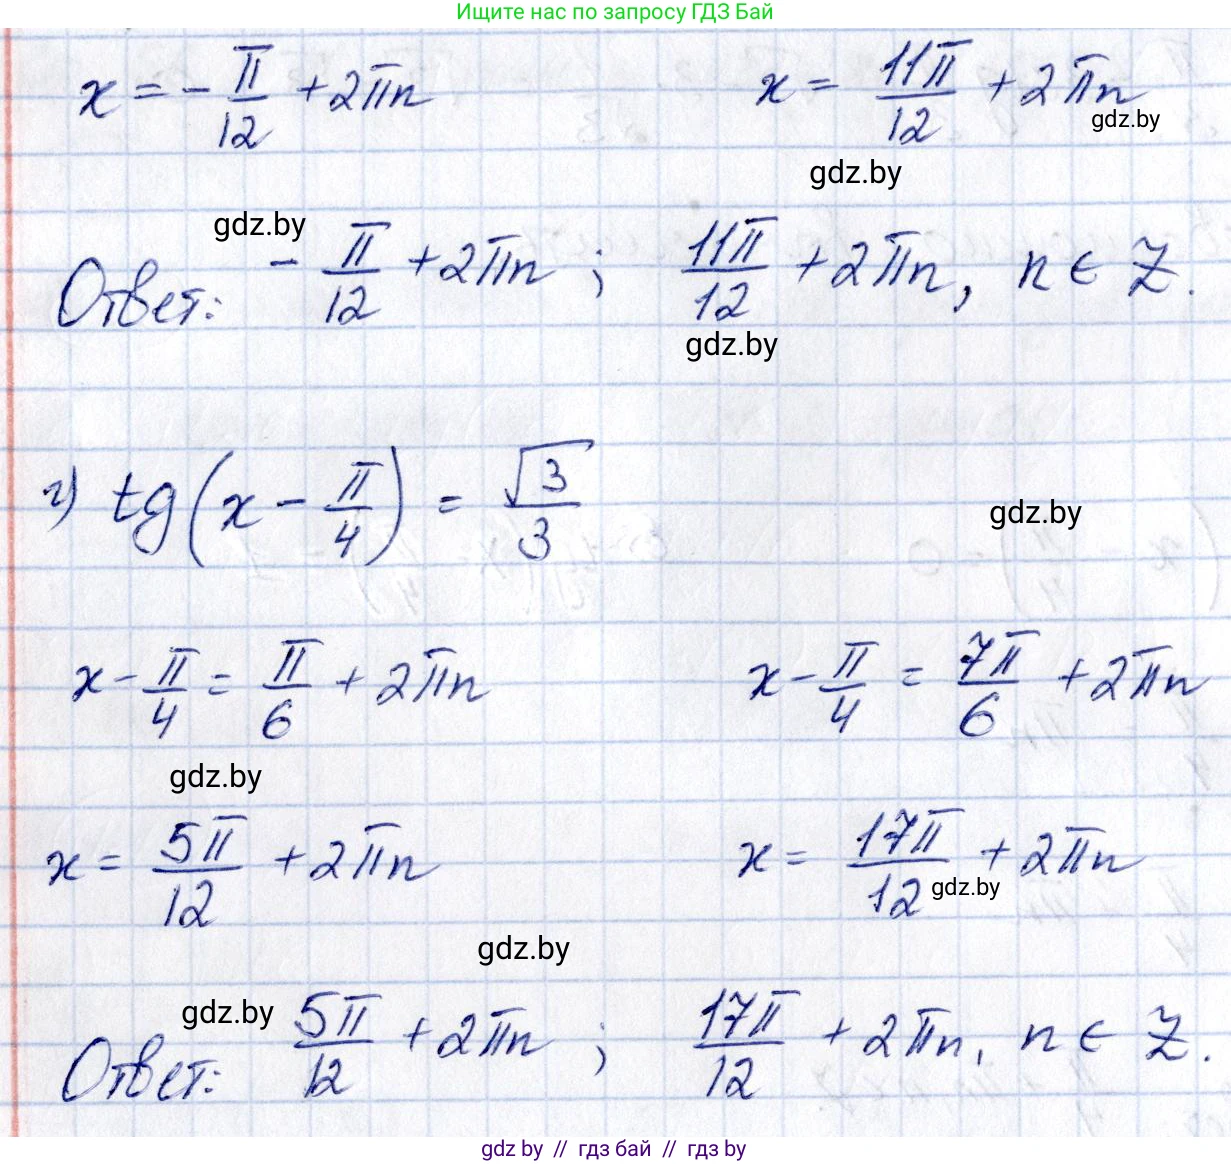 Ищите нас по запросу ГДЗ Бай
x = -π/12 + 2πn x = 11π/12 + 2πn
gdz.by
gdz.by
gdz.by
Ответ: -π/12 + 2πn ; 11π/12 + 2πn, n ∈ Z.
gdz.by
г) tg(x - π/4) = √3/3
gdz.by
x - π/4 = π/6 + 2πn x - π/4 = 7π/6 + 2πn
gdz.by
x = 5π/12 + 2πn x = 17π/12 + 2πn
gdz.by
gdz.by
gdz.by
Ответ: 5π/12 + 2πn ; 17π/12 + 2πn, n ∈ Z.
gdz.by // гдз бай // gdz.by